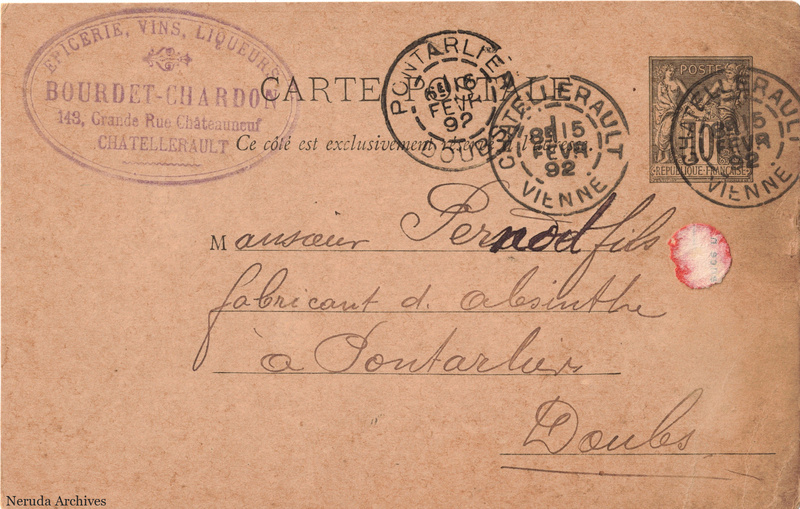 EPICERIE, VINS, LIQUEURS
BOURDET-CHARDON
143, Grande Rue Châteauneuf
CHATELLERAULT
CARTE POSTALE
Ce côté est exclusivement réservé à l'adresse.
PONTARLIER
16
FEVR
92
DOUBS
CHATELLERAULT
8E 15
FEVR
92
VIENNE
POSTES
10
REPUBLIQUE FRANÇAISE
CHATELLERAULT
8E 15
FEVR
92
VIENNE
Mansœur Pernod fils
fabricant d. absinthe
a Pontarlier
Doubs
Neruda Archives